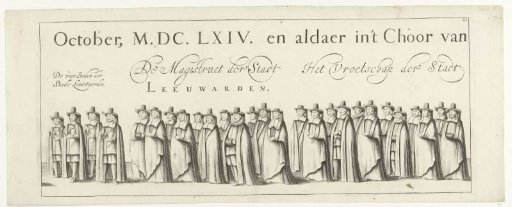 October, M.DC. LXIV. en aldaer in't Choor van
De vier Boden der
Steede Leeuwarden.
De Magistraet der Stadt Het Vroetschap der Stadt
LEEUWARDEN.